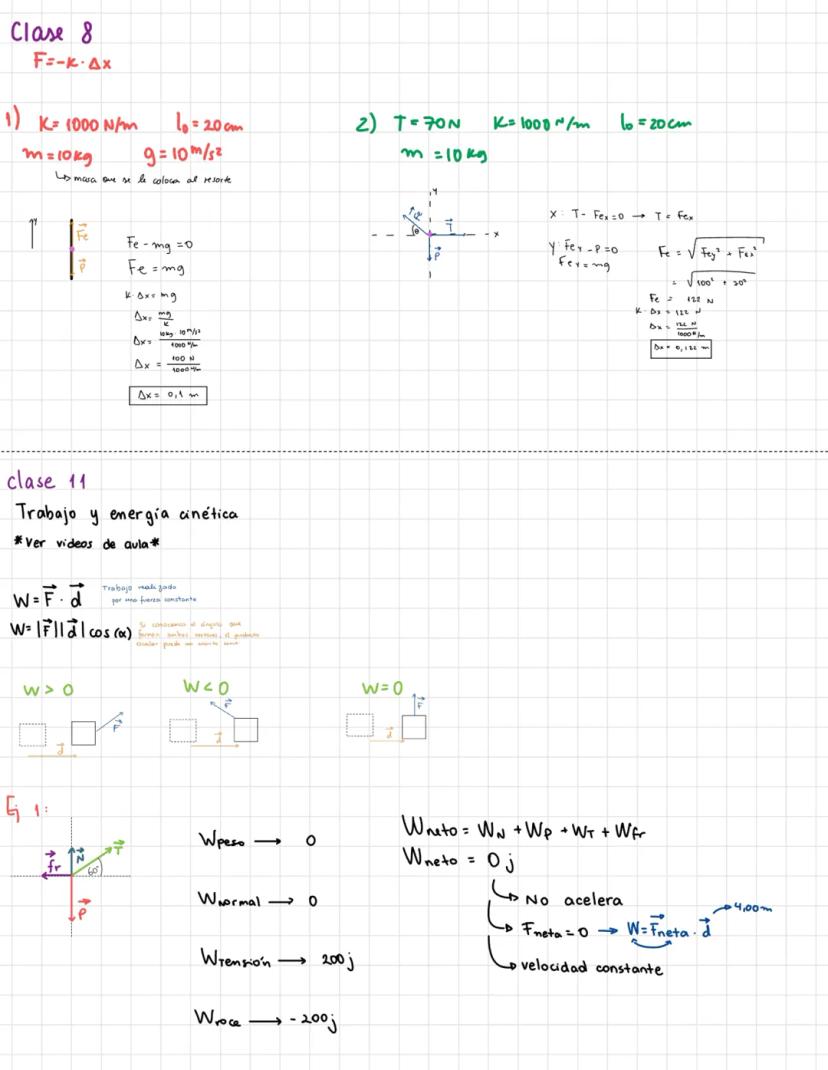 Clase 8
F=-K·Δx
1) K=1000 N/m l₀=20cm
m=10kg g=10m/s²
↳ masa que se le coloca al resorte
y
Fe
P
Fe - mg =0
Fe = mg
K·Δx= mg
Δx= mg/K
Δx= 10kg·10m/s²/1000N/m
Δx = 100 N/1000N/m
Δx= 0,1 m
2) T=70N K=1000 N/m l₀=20cm
m =10kg
y
Fe
θ
T
x
P
x: T- Fex=0 → T= Fex
y: Fey -P=0
Fey=mg
Fe = √Fey² + Fex²
= √100² + 70²
Fe = 122 N
K·Δx = 122 N
Δx = 122 N/1000N/m
Δx= 0,122 m
clase 11
Trabajo y energía cinética
*Ver videos de aula*
W=F·d Trabajo realizado
por una fuerza constante
W=|F||d|cos(α) Si conocemos el ángulo que
forman ambos vectores, el producto
escalar puede
W> 0 W<0 W=0
F F F
d d d
Ej 1:
fr N T
60°
P
Wpeso → 0
Wnormal → 0
WTensión → 200j
Wroce → -200j
Wneto = WN +WP +WT + Wfr
Wneto = 0j
↳ No acelera
↳ Fneta=0 → W=Fneta·d → 4,00m
↳ velocidad constante